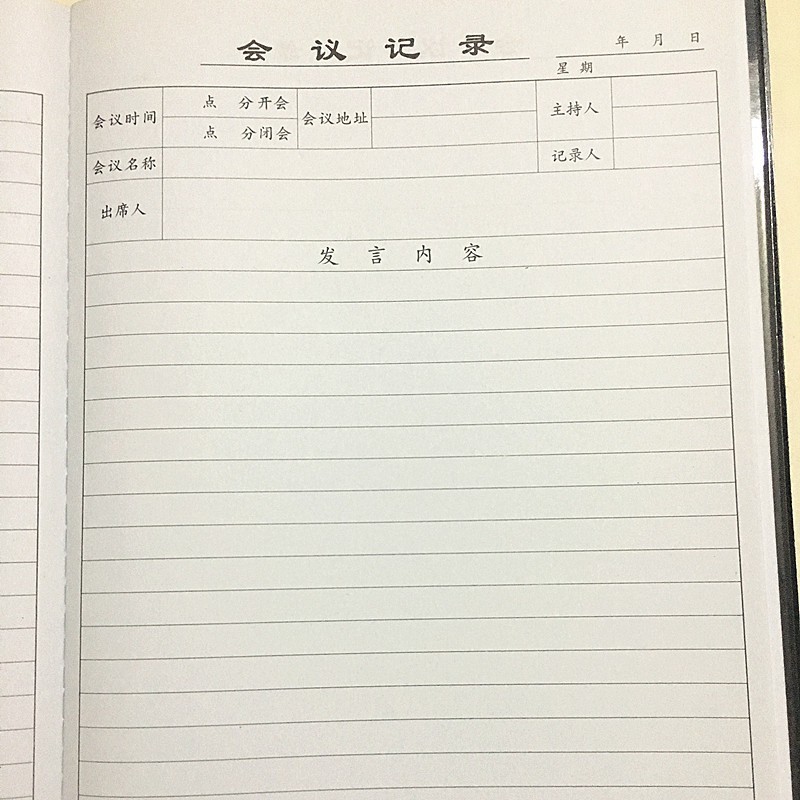 会议记录
年 月 日
星期
会议时间 点 分开会 会议地址 主持人
点 分闭会
会议名称 记录人
出席人
发言内容